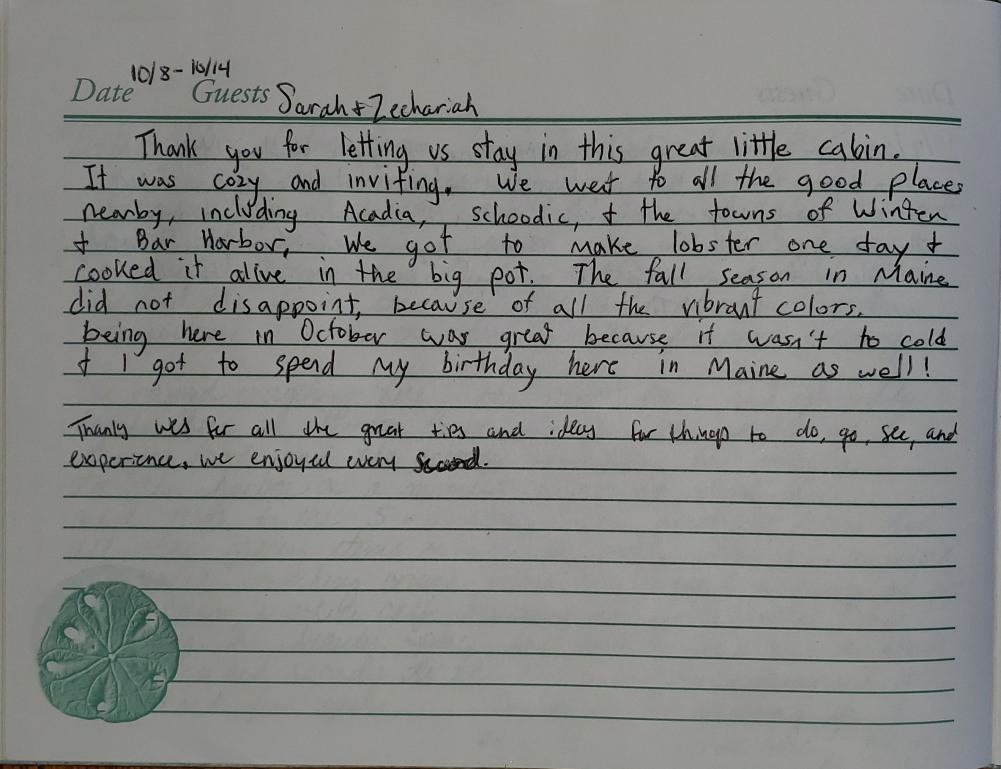 10/8 - 10/14
Date Guests Sarah & Zechariah
Thank you for letting us stay in this great little cabin.
It was cozy and inviting. We went to all the good places
nearby, including Acadia, Schoodic, & the towns of Winter
& Bar Harbor, We got to make lobster one day &
cooked it alive in the big pot. The fall season in Maine
did not disappoint, because of all the vibrant colors.
being here in October was great because it wasn't to cold
& I got to spend my birthday here in Maine as well!
for all the great tips and ideas for things to do, go, see, and
experience. we enjoyed every second.